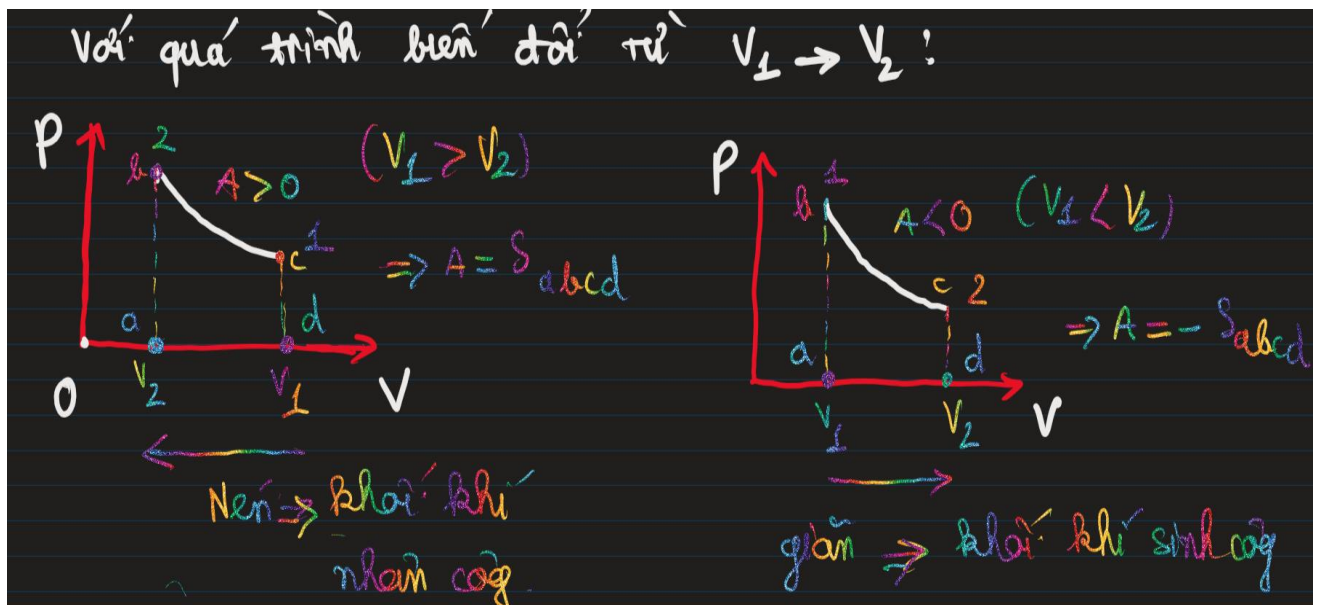 Với quá trình biến đổi từ V₁ → V₂:
P
2
b
A > 0
(V₁ > V₂)
c 1
⇒ A = S abcd
a
d
O
V₂
V₁
V
Nén ⇒ khối khí
nhận công
P
1
b
A < 0
(V₁ < V₂)
c 2
⇒ A = - S abcd
a
d
V₁
V₂
V
giãn ⇒ khối khí sinh công